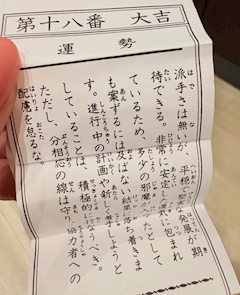 第十八番 大吉
運勢
派手さは無いが、平穏で堅実な発展が期
待できる。非常に安定した運気に包まれ
ているため、多少の邪魔が入ったとして
も案ずるには及ばない結果に落ち着きま
す。進行中の計画や新しく着手しようと
していることは、積極的に行なうべき。
ただし、分相応の線は守り、協力者への
配慮を怠るな。